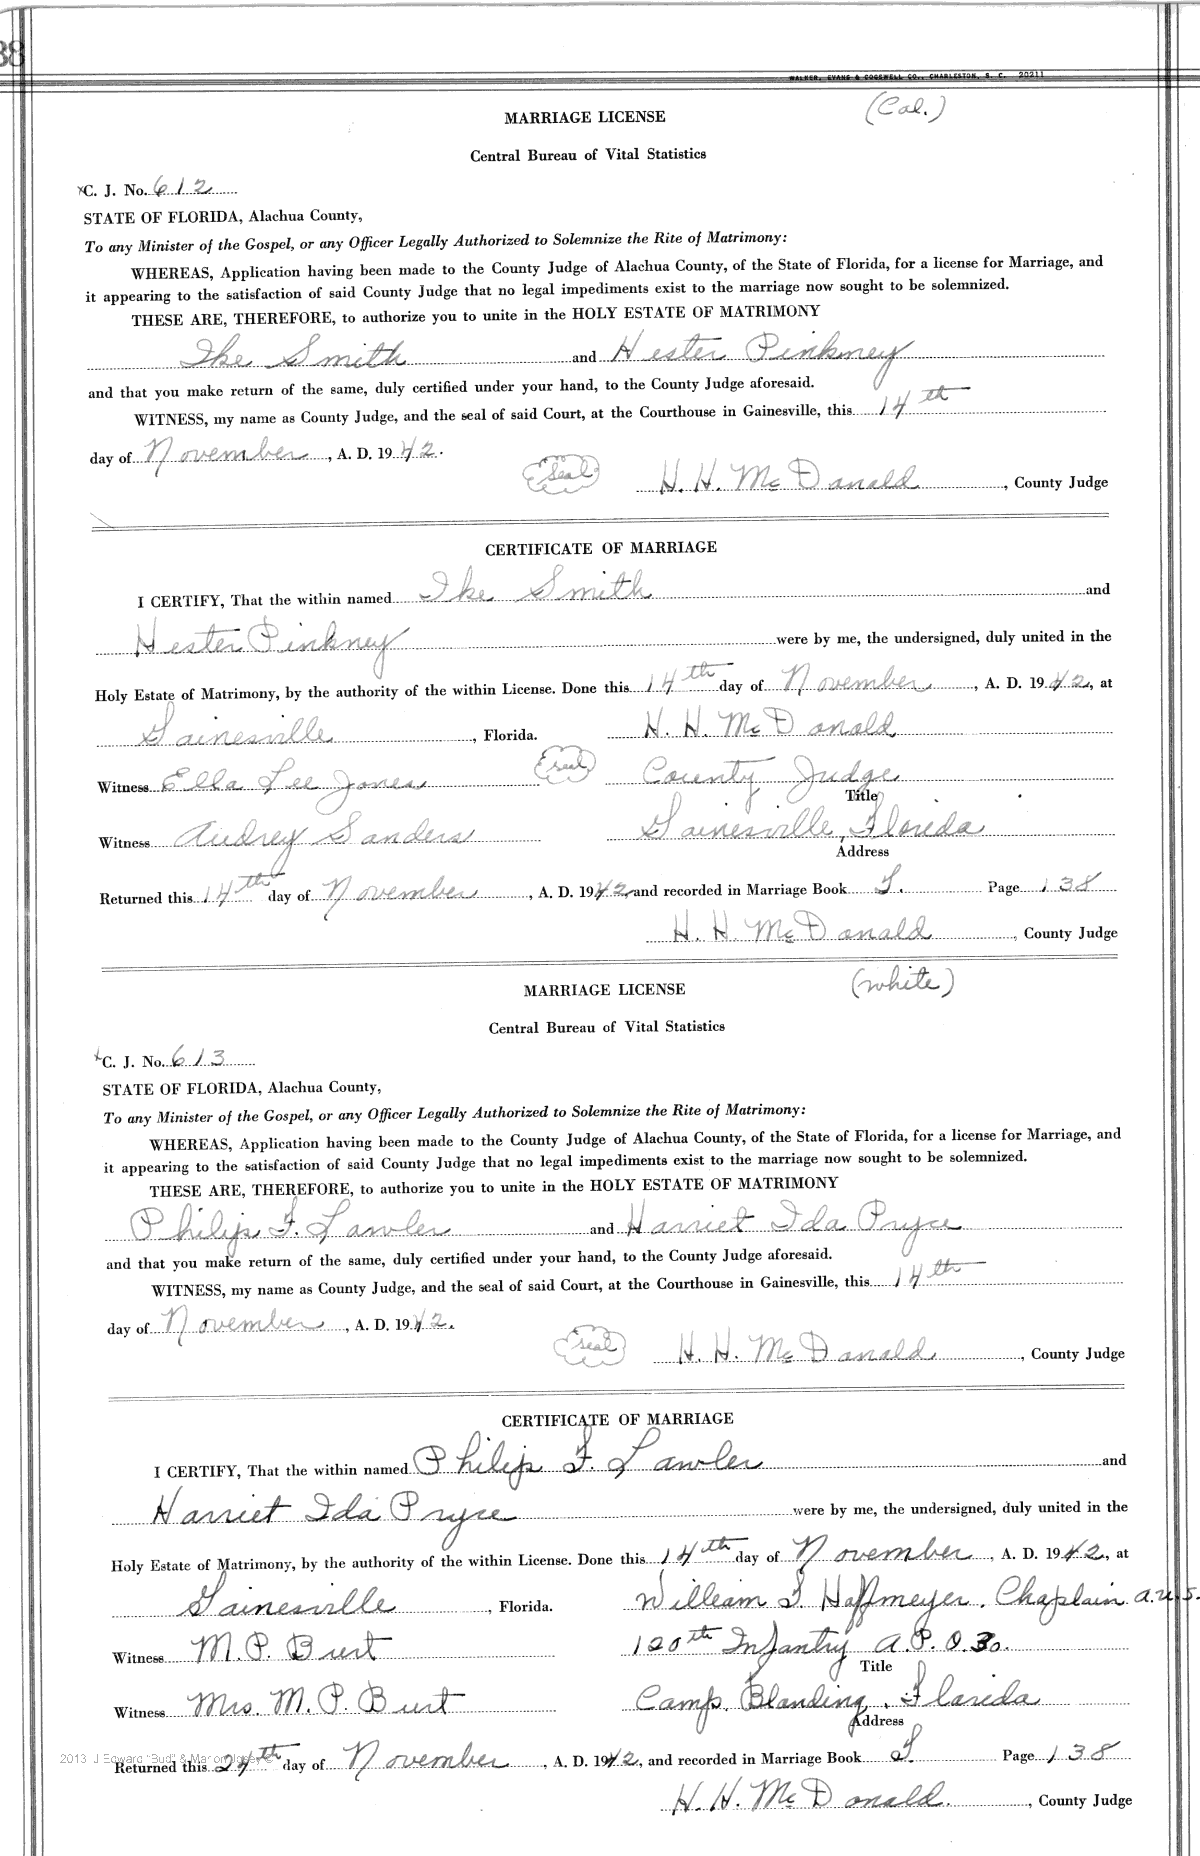 38
WALKER, EVANS & COGSWELL CO., CHARLESTON, S. C. 20211
MARRIAGE LICENSE (Col.)
Central Bureau of Vital Statistics
C. J. No. 612
STATE OF FLORIDA, Alachua County,
To any Minister of the Gospel, or any Officer Legally Authorized to Solemnize the Rite of Matrimony:
WHEREAS, Application having been made to the County Judge of Alachua County, of the State of Florida, for a license for Marriage, and
it appearing to the satisfaction of said County Judge that no legal impediments exist to the marriage now sought to be solemnized.
THESE ARE, THEREFORE, to authorize you to unite in the HOLY ESTATE OF MATRIMONY
Ike Smith and Hester Pinkney
and that you make return of the same, duly certified under your hand, to the County Judge aforesaid.
WITNESS, my name as County Judge, and the seal of said Court, at the Courthouse in Gainesville, this 14th
day of November, A. D. 1942.
Seal H. H. McDonald, County Judge
CERTIFICATE OF MARRIAGE
I CERTIFY, That the within named Ike Smith and
Hester Pinkney were by me, the undersigned, duly united in the
Holy Estate of Matrimony, by the authority of the within License. Done this 14th day of November, A. D. 1942, at
Gainesville, Florida. H. H. McDonald
Witness Ella Lee Jones seal County Judge
Title
Witness Audrey Sanders Gainesville, Florida
Address
Returned this 14th day of November, A. D. 1942, and recorded in Marriage Book Page 138
H. H. McDonald, County Judge
MARRIAGE LICENSE (white)
Central Bureau of Vital Statistics
C. J. No. 613
STATE OF FLORIDA, Alachua County,
To any Minister of the Gospel, or any Officer Legally Authorized to Solemnize the Rite of Matrimony:
WHEREAS, Application having been made to the County Judge of Alachua County, of the State of Florida, for a license for Marriage, and
it appearing to the satisfaction of said County Judge that no legal impediments exist to the marriage now sought to be solemnized.
THESE ARE, THEREFORE, to authorize you to unite in the HOLY ESTATE OF MATRIMONY
Philip F. Lawler and Harriet Ida Pryce
and that you make return of the same, duly certified under your hand, to the County Judge aforesaid.
WITNESS, my name as County Judge, and the seal of said Court, at the Courthouse in Gainesville, this 14th
day of November, A. D. 1942.
seal H. H. McDonald, County Judge
CERTIFICATE OF MARRIAGE
I CERTIFY, That the within named Philip F. Lawler and
Harriet Ida Pryce were by me, the undersigned, duly united in the
Holy Estate of Matrimony, by the authority of the within License. Done this 14th day of November, A. D. 1942, at
Gainesville, Florida. William Haffmeyer, Chaplain A.U.S.
Witness M. P. Burt 120th Infantry A.P.O. 30.
Title
Witness Mrs. M. P. Burt Camp Blanding, Florida
Address
2013 J Edward "Bud" & Marion Josey ©
Returned this 24th day of November, A. D. 1942, and recorded in Marriage Book Page 138
H. H. McDonald, County Judge